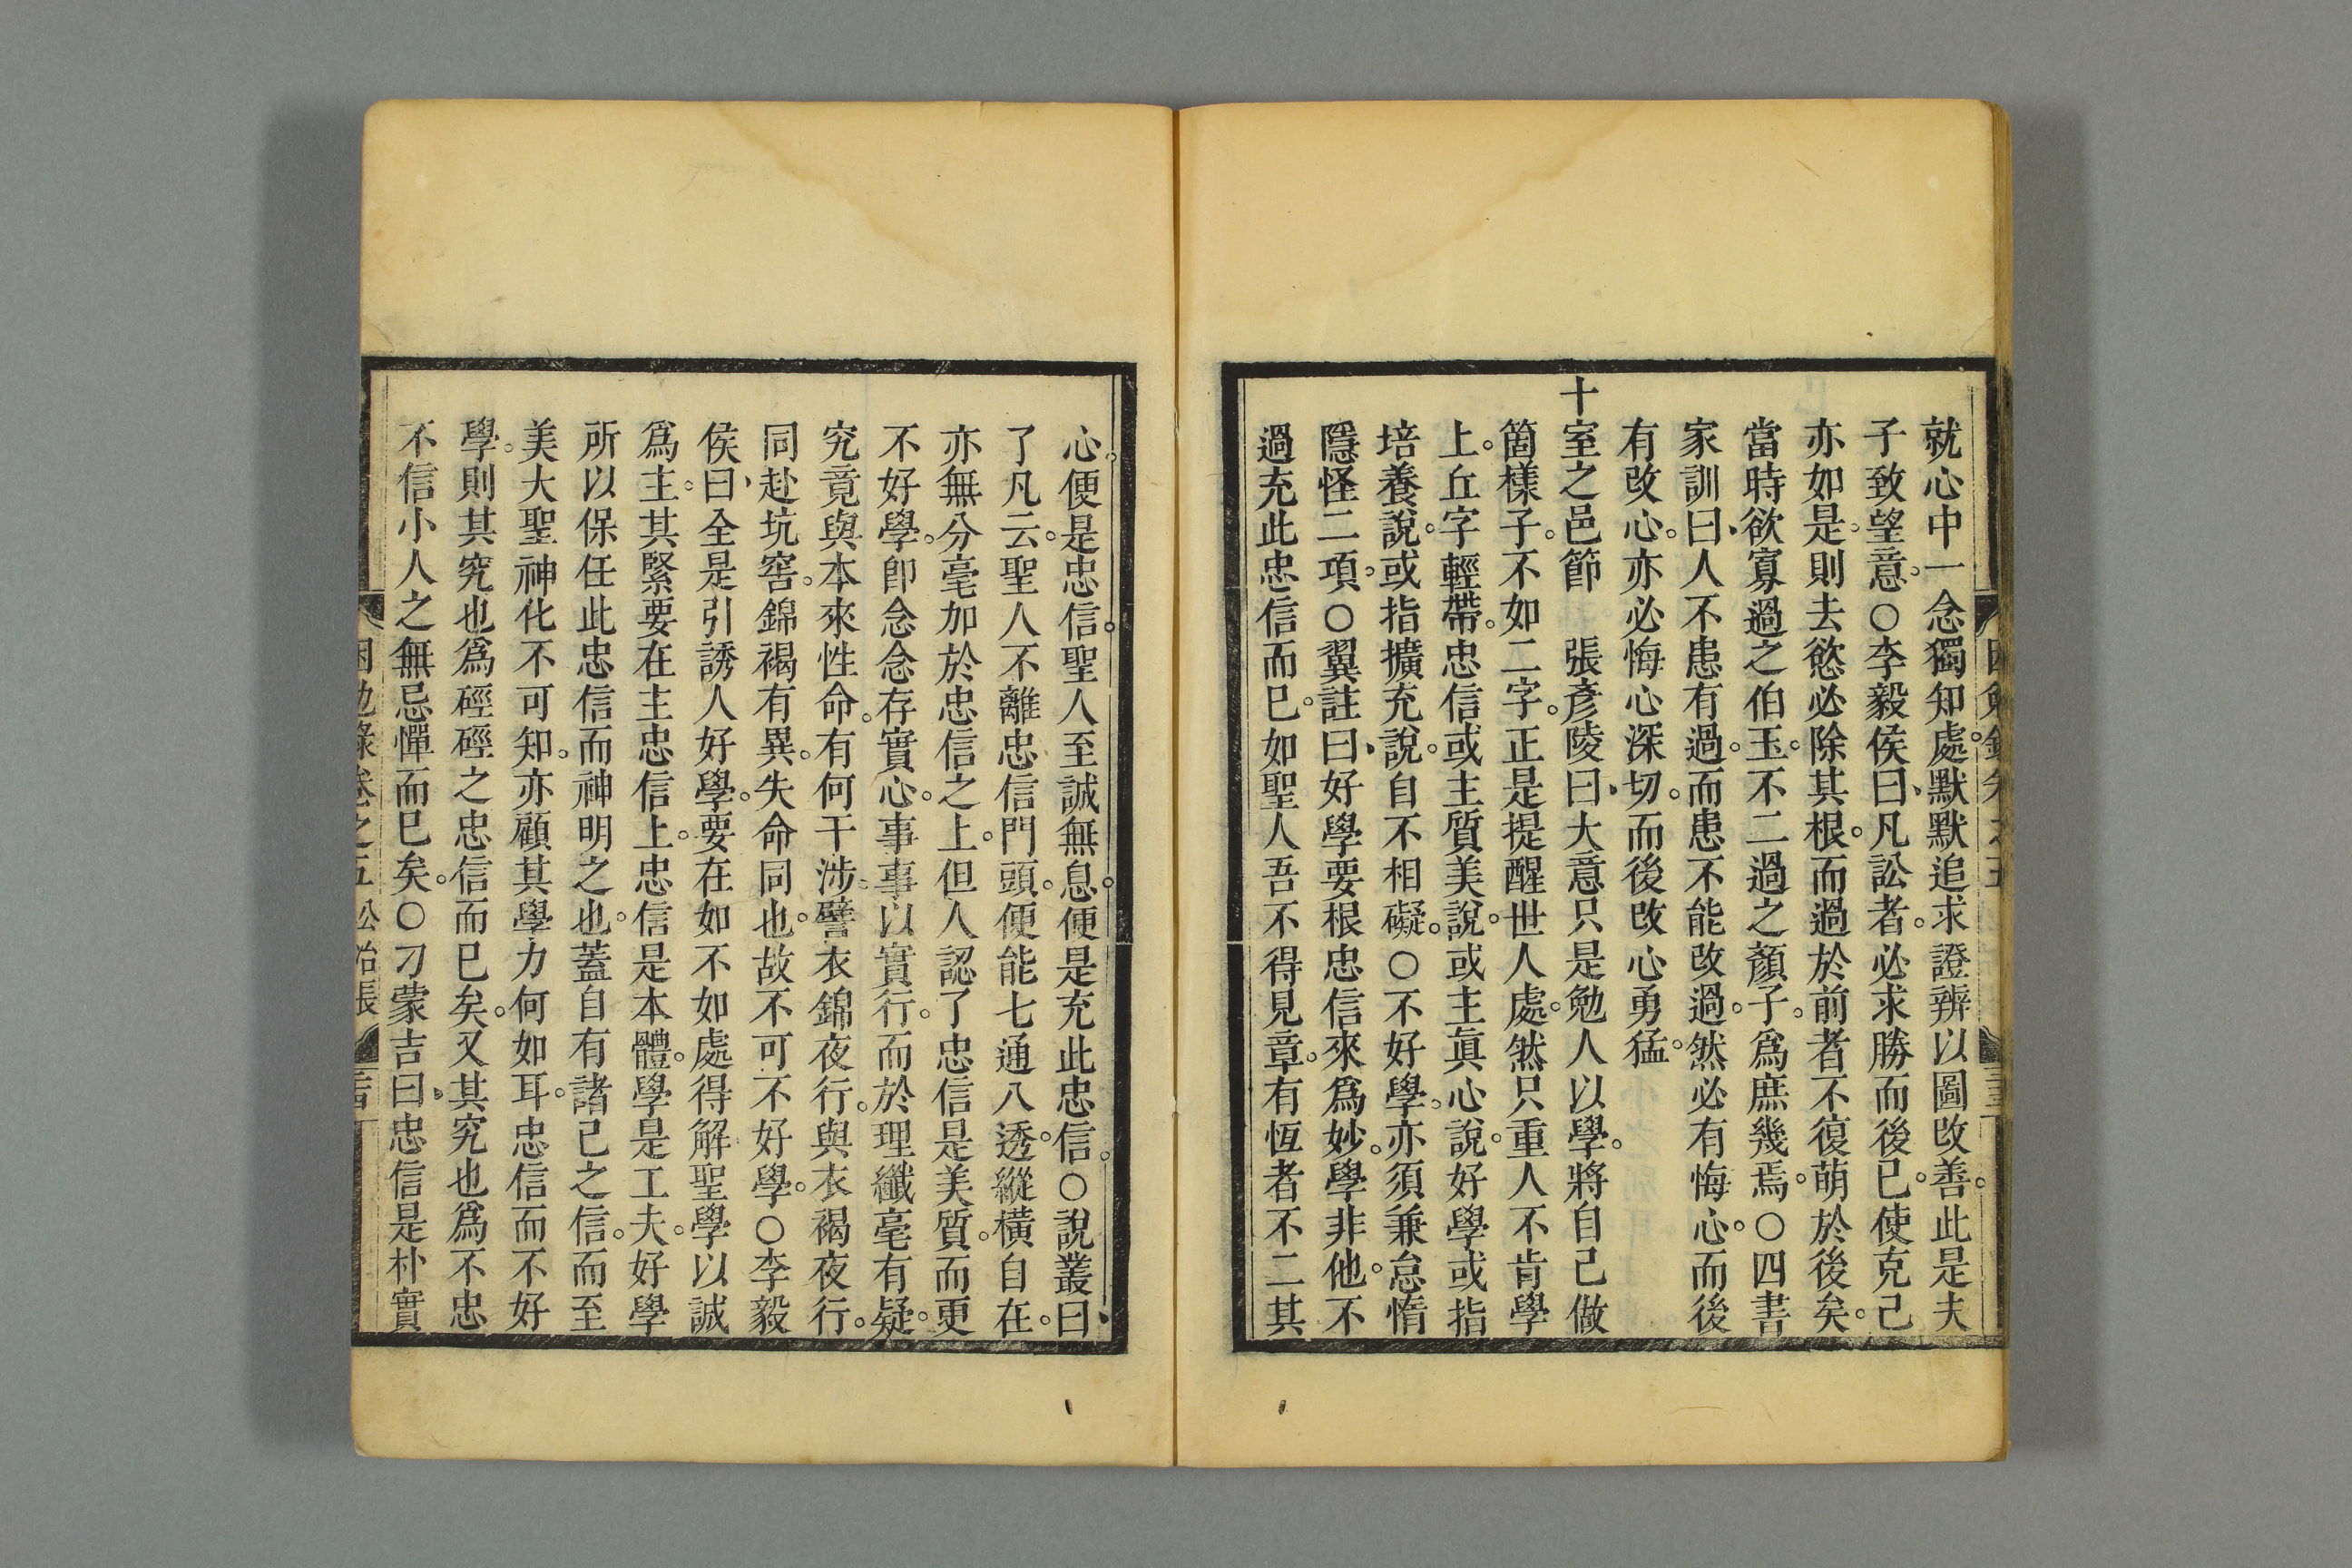 就心中一念獨知處。默默追求證辨以圖改善。此是夫
子致望意。○李毅侯曰、凡訟者。必求勝而後已。使克己
亦如是。則去慾必除其根。而過於前者不復萌於後矣。
當時欲寡過之伯玉。不二過之顏子。爲庶幾焉。○四書
家訓曰、人不患有過。而患不能改過。然必有悔心。而後
有改心。亦必悔心深切。而後改心勇猛。
十室之邑節　張彥陵曰、大意只是勉人以學。將自己做
箇樣子。不如二字。正是提醒世人處。然只重人不肯學
上。丘字輕帶。忠信或主質美說。或主眞心說。好學或指
培養說。或指擴充說。自不相礙。○不好學。亦須兼怠惰
隱怪二項。○翼註曰、好學要根忠信來爲妙。學非他。不
過充此忠信而已。如聖人吾不得見章。有恆者不二其
心。便是忠信。聖人至誠無息。便是充此忠信。○說叢曰、
了凡云。聖人不離忠信門頭。便能七通八透。縱橫自在。
亦無分毫加於忠信之上。但人認了忠信是美質。而更
不好學。卽念念存實心。事事以實行。而於理纖毫有疑。
究竟與本來性命。有何干涉。譬衣錦夜行。與衣褐夜行。
同赴坑窖。錦褐有異。失命同也。故不可不好學。○李毅
侯曰、全是引誘人好學。要在如不如處得解聖學以誠
爲主。其緊要在主忠信上。忠信是本體。學是工夫。好學
所以保任此忠信而神明之也。蓋自有諸己之信。而至
美大聖神化不可知。亦顧其學力何如耳。忠信而不好
學。則其究也爲硜硜之忠信而已矣。又其究也爲不忠
不信小人之無忌憚而已矣。○刁蒙吉曰、忠信是朴實